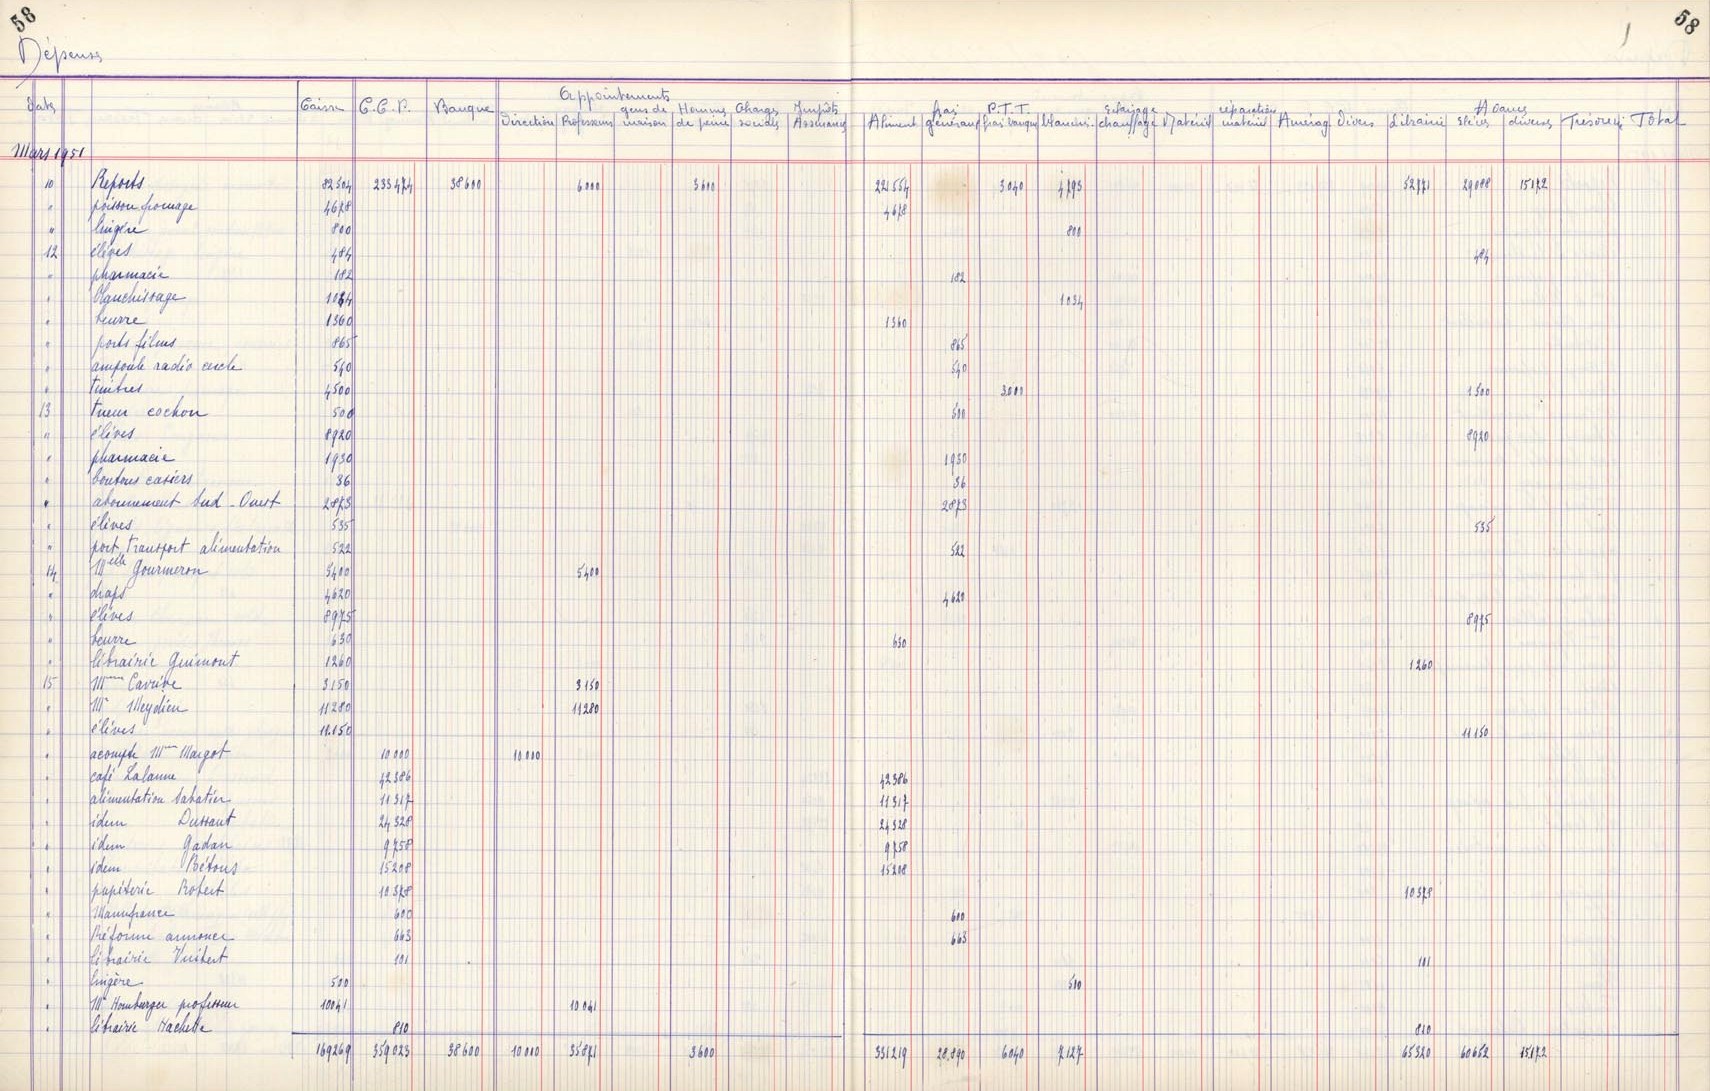 58 58
Dépenses
Dates Caisse C.C.P. Banque Appointements Direction Professeurs gens de maison Homme de peine Charges sociales Impôts Assurances Aliment frais généraux P.T.T. frais banque blanchi. Eclairage chauffage Matériel réparation matériel Aménag Divers Librairie Avances élèves diverses Trésorerie Total
Mars 1951
10 Reports 82504 233474 38600 6000 3600 221554 3040 4793 52771 29088 15172
" poisson fromage 4678 4678
" lingère 800 800
12 élèves 484 484
" pharmacie 182 182
" blanchissage 1034 1034
" beurre 1360 1360
" ports films 865 865
" ampoule radio cercle 540 540
" timbres 4500 3000 1500
13 tueur cochon 500 500
" élèves 8920 8920
" pharmacie 1930 1930
" boutons casiers 36 36
" abonnement Sud-Ouest 2873 2873
" élèves 535 535
" port, transport alimentation 522 522
14 Melle Gourmeron 5400 5400
" draps 4620 4620
" élèves 8975 8975
" beurre 630 630
" librairie Guimont 1260 1260
15 Mme Cavrive 3150 3150
" Mr Meydieu 11280 11280
" élèves 11.150 11150
" acompte Mme Margot 10 000 10.000
" café Lalanne 42386 42386
" alimentation Sabatier 11317 11317
" idem Dussaut 24328 24328
" idem Gadan 9758 9758
" idem Bétous 15208 15208
" papéterie Robert 10378 10378
" Manufrance 600 600
" Réforme annonce 663 663
" librairie Vuibert 101 101
" lingère 500 500
" Mr Homburger professeur 10041 10041
" librairie Hachette 810 810
169269 359023 38600 10000 35871 3600 331219 28.890 6040 7127 65320 60652 15172